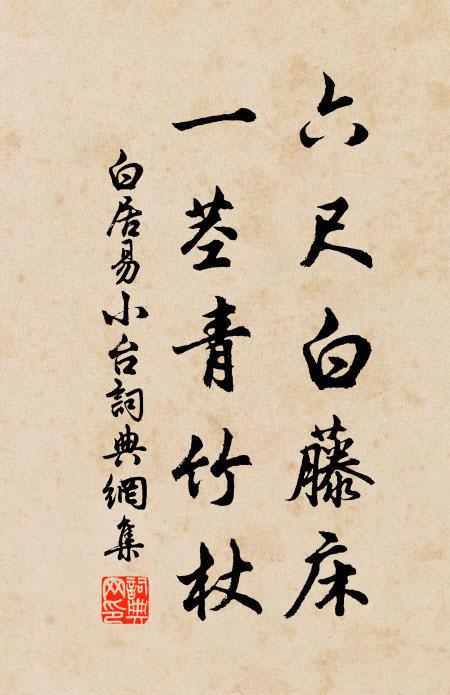 六尺白藤床
一茎青竹杖
白居易小台詞典網集
詞典網印